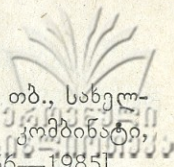 თბ., სახელ-
კომბინატი,
6—1985]